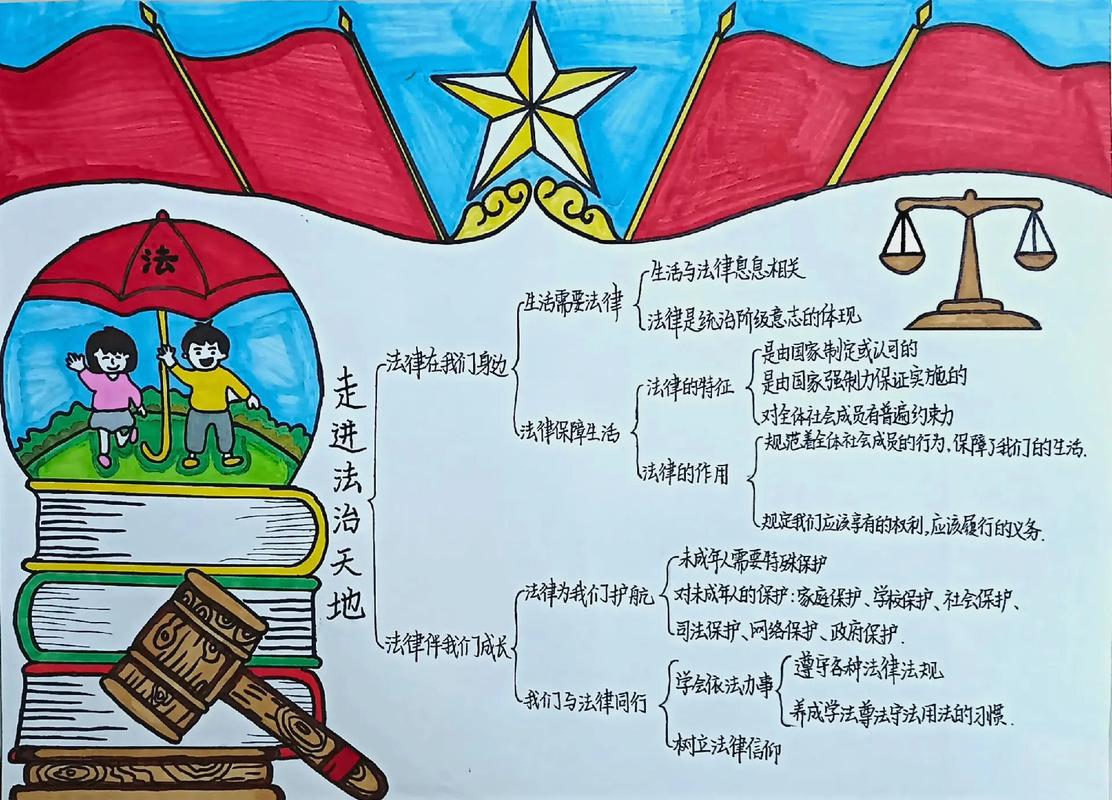 法
走进法治天地
法律在我们身边
生活需要法律
生活与法律息息相关
法律是统治阶级意志的体现
法律保障生活
法律的特征
是由国家制定或认可的
是由国家强制力保证实施的
对全体社会成员有普遍约束力
法律的作用
规范着全体社会成员的行为,保障了我们的生活.
规定我们应该享有的权利,应该履行的义务.
法律伴我们成长
法律为我们护航
未成年人需要特殊保护
对未成年人的保护:家庭保护、学校保护、社会保护、
司法保护、网络保护、政府保护.
我们与法律同行
学会依法办事
遵守各种法律法规
养成学法尊法守法用法的习惯.
树立法律信仰